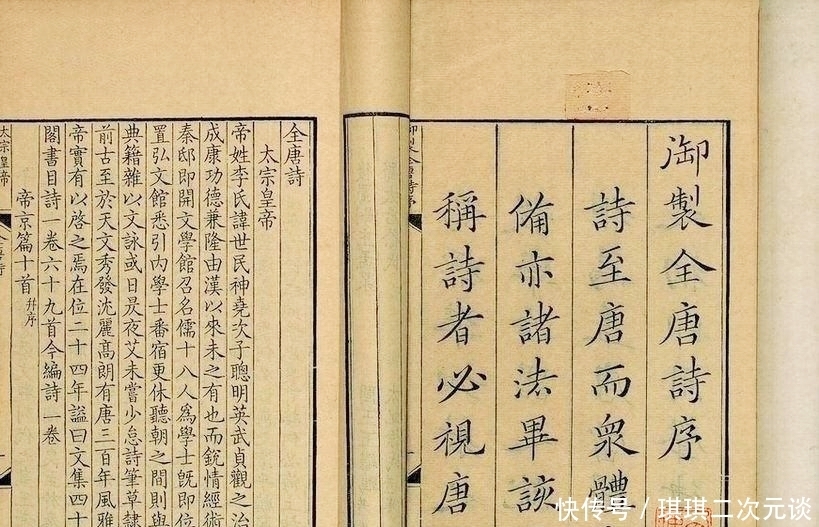 御製全唐詩序
詩至唐而衆體
備亦諸法畢該
稱詩者必視唐
全唐詩
太宗皇帝
帝姓李氏諱世民神堯次子聰明英武貞觀之治
成康功德兼隆由漢以來未之有也而銳情經術
秦邸即開文學館召名儒十八人爲學士既即位
置弘文館悉引內學士番宿更休聽朝之間則與
典籍雜以文詠或日昃夜艾未嘗少怠詩筆草隸
前古至於天文秀發沈麗高朗有唐三百年風雅
帝實有以啓之焉在位二十四年諡曰文集四十
閣書目詩一卷六十九首今編詩一卷
帝京篇十首并序
太宗皇帝
快传号/琪琪二次元谈